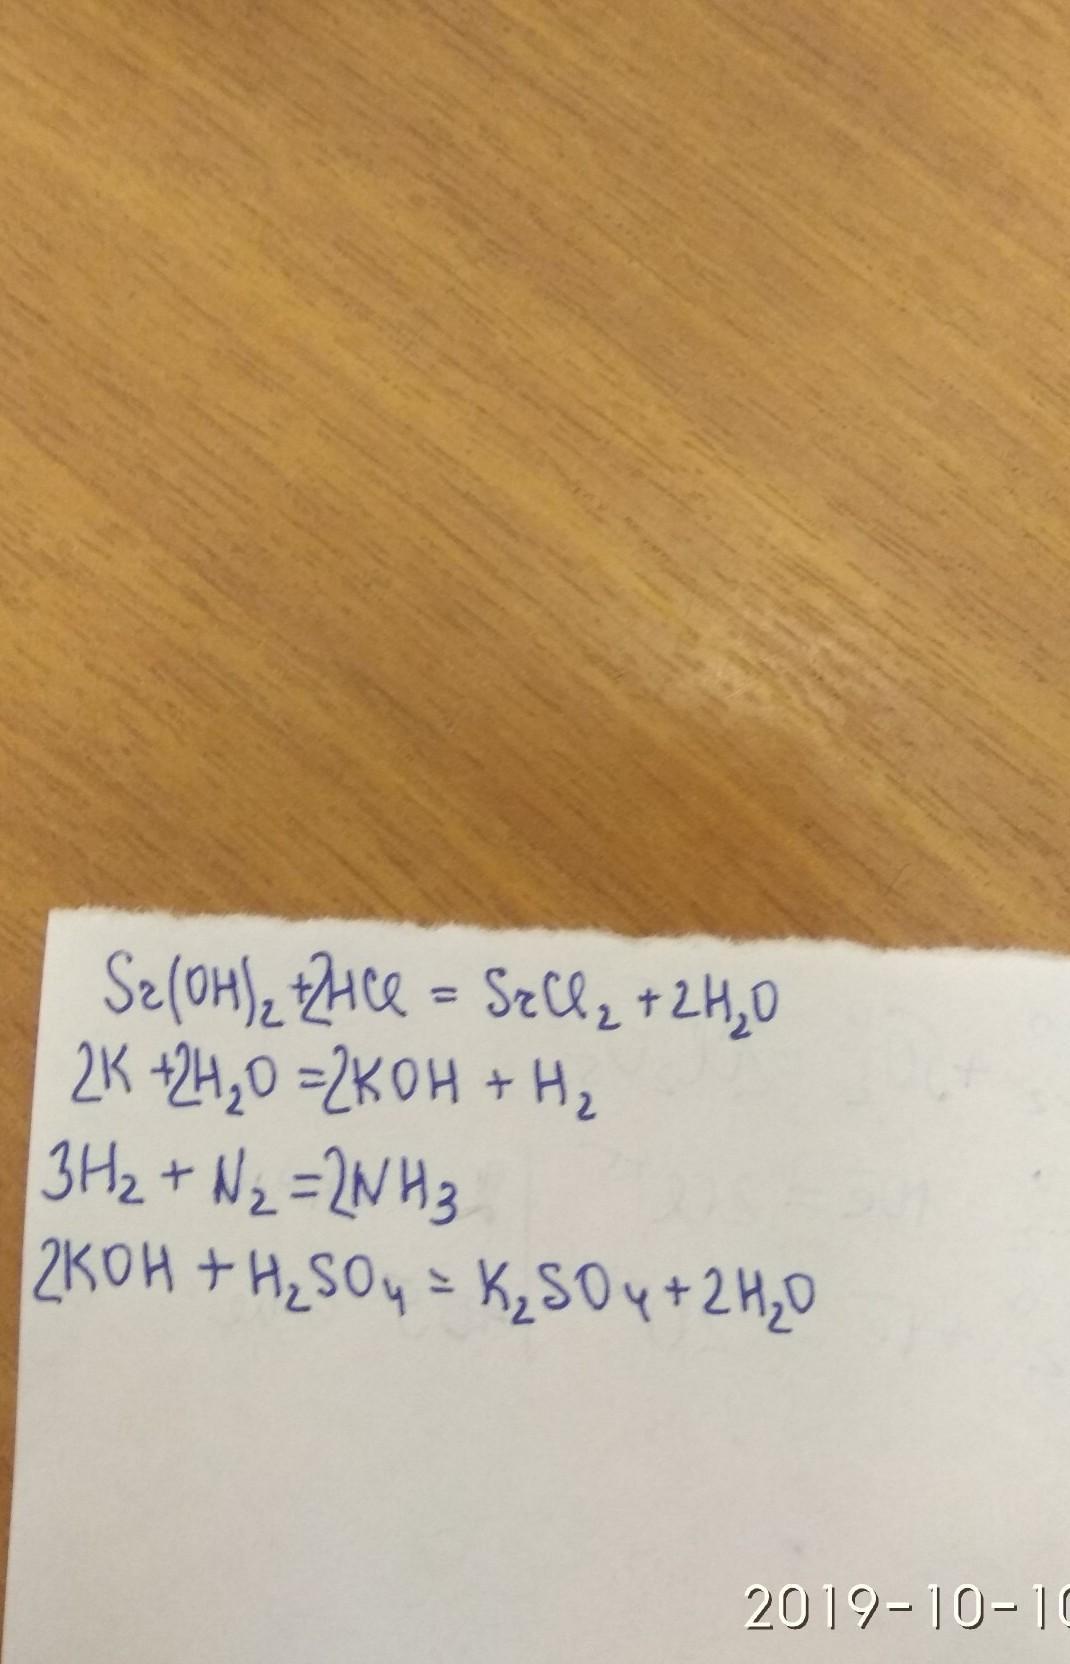 Sr(OH)₂ + 2HCl = SrCl₂ + 2H₂O
2K + 2H₂O = 2KOH + H₂
3H₂ + N₂ = 2NH₃
2KOH + H₂SO₄ = K₂SO₄ + 2H₂O
2019-10-10